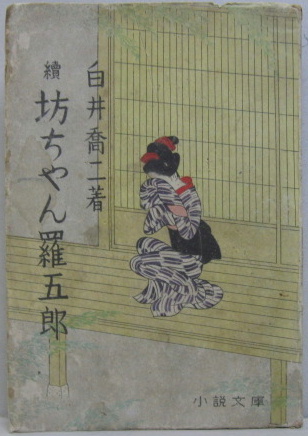 白井喬二著
續
坊ちやん羅五郎
小説文庫